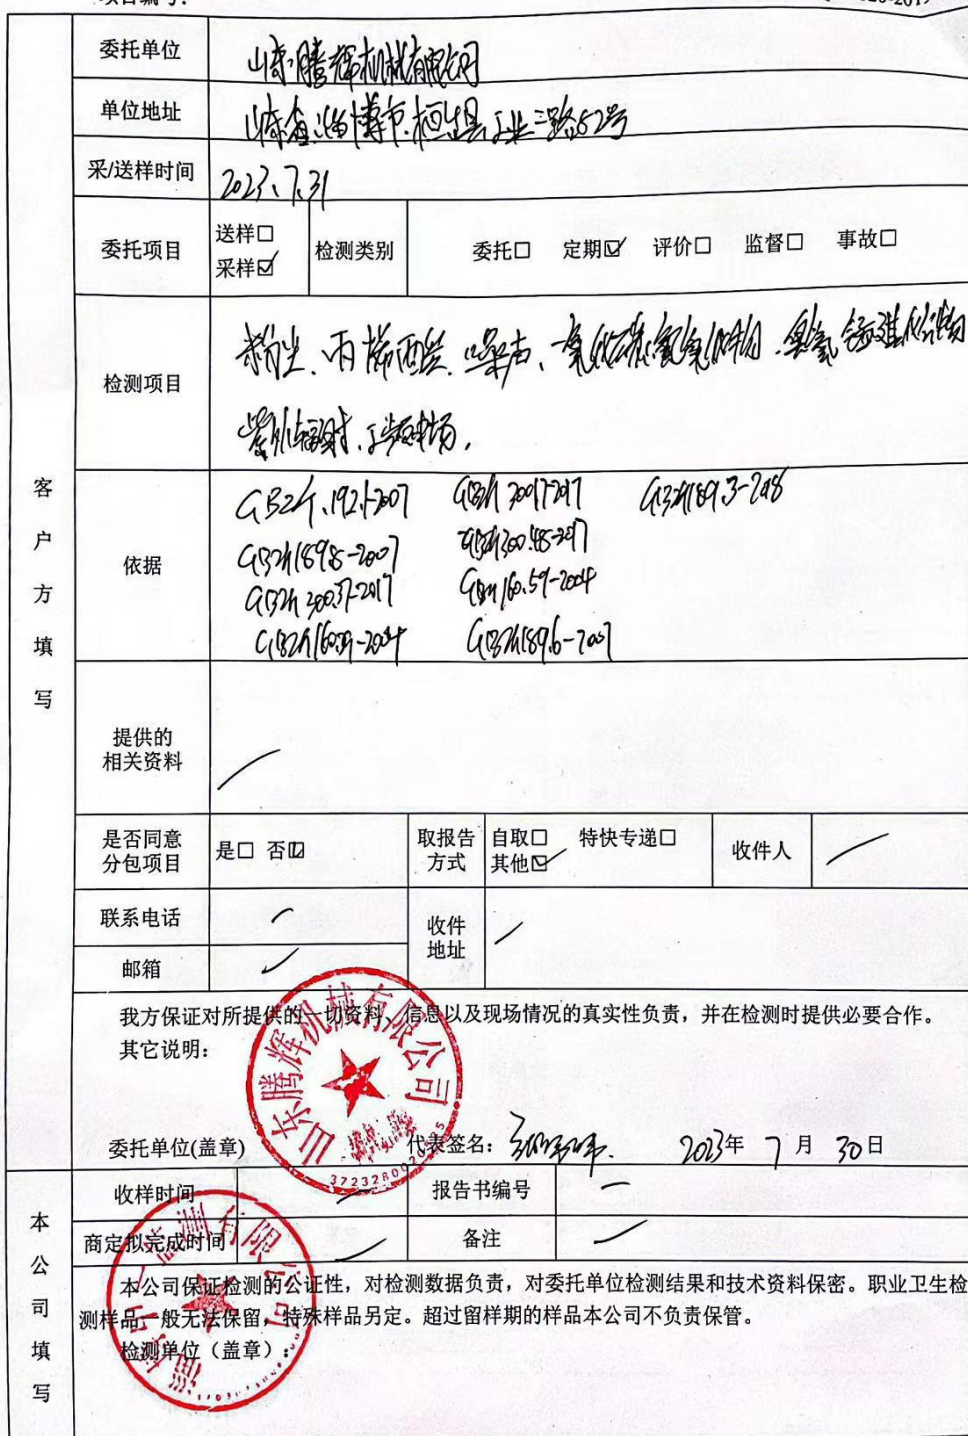 项目编号:
委托单位 山东腾辉机械有限公司
单位地址 山东省淄博市桓台县工业三路52号
采/送样时间 2023.7.31
委托项目 送样□ 采样☑ 检测类别 委托□ 定期☑ 评价□ 监督□ 事故□
检测项目
粉尘、丙烯酸、噪声、一氧化碳、氮氧化物、臭氧、锰及其化合物
紫外辐射、工频电场。
客户方填写
依据
GBZ/T.192.1-2007 GBZ/T 300.17-2017 GBZ/T189.3-2018
GBZ/T189.8-2007 GBZ/T300.48-2017
GBZ/T 300.37-2017 160.59-2004
GBZ/T160.29-2004 GBZ/T189.6-2007
提供的
相关资料
是否同意
分包项目 是□ 否☑ 取报告
方式 自取□ 特快专递□
其他☑ 收件人
联系电话 收件
地址
邮箱
我方保证对所提供的一切资料、信息以及现场情况的真实性负责，并在检测时提供必要合作。
其它说明：
山东腾辉机械有限公司
委托单位(盖章) 代表签名： 2023年 7 月 30日
本公司填写
收样时间 报告书编号
商定拟完成时间 备注
本公司保证检测的公证性，对检测数据负责，对委托单位检测结果和技术资料保密。职业卫生检
测样品一般无法保留，特殊样品另定。超过留样期的样品本公司不负责保管。
检测单位（盖章）：